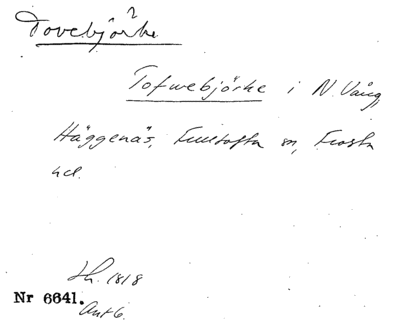 ?
Tovebjörke
Tofwebjörke i N. Vång,
Häggenäs, Fulltofta sn, Frosta
hd.
Lh. 1818
Nr 6641.
Ant 6.